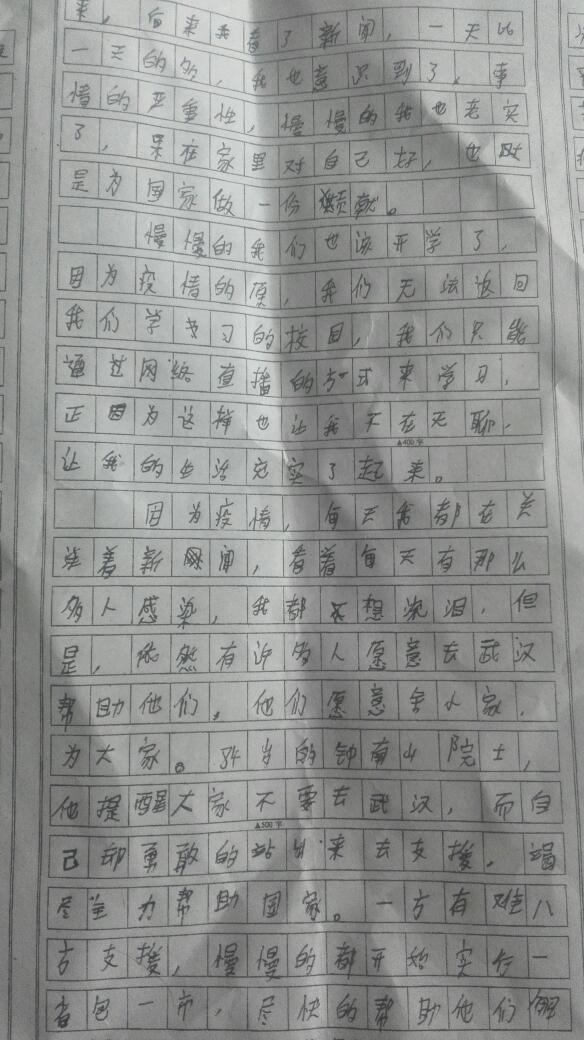 来，后来我看了新闻，一天比
一天的多，我也意识到了，事
情的严重性，慢慢的我也老实
了，呆在家里对自己好，也时
是为国家做一份贡献。
慢慢的我们也该开学了，
因为疫情的原，我们无法返回
我们学习的校园，我们只能
通过网络直播的方式来学习，
正因为这样也让我不在无聊，
▲400字
让我的生活充实了起来。
因为疫情，每天我都在关
注着新闻，看着每天有那么
多人感染，我都想流泪，但
是，依然有许多人愿意去武汉
帮助他们。他们愿意舍小家，
为大家。84岁的钟南山院士，
他提醒大家不要去武汉，而自
▲500字
己却勇敢的站出来去支援。竭
尽全力帮助国家。一方有难八
方支援，慢慢的都开始实行一
省包一市，尽快的帮助他们解